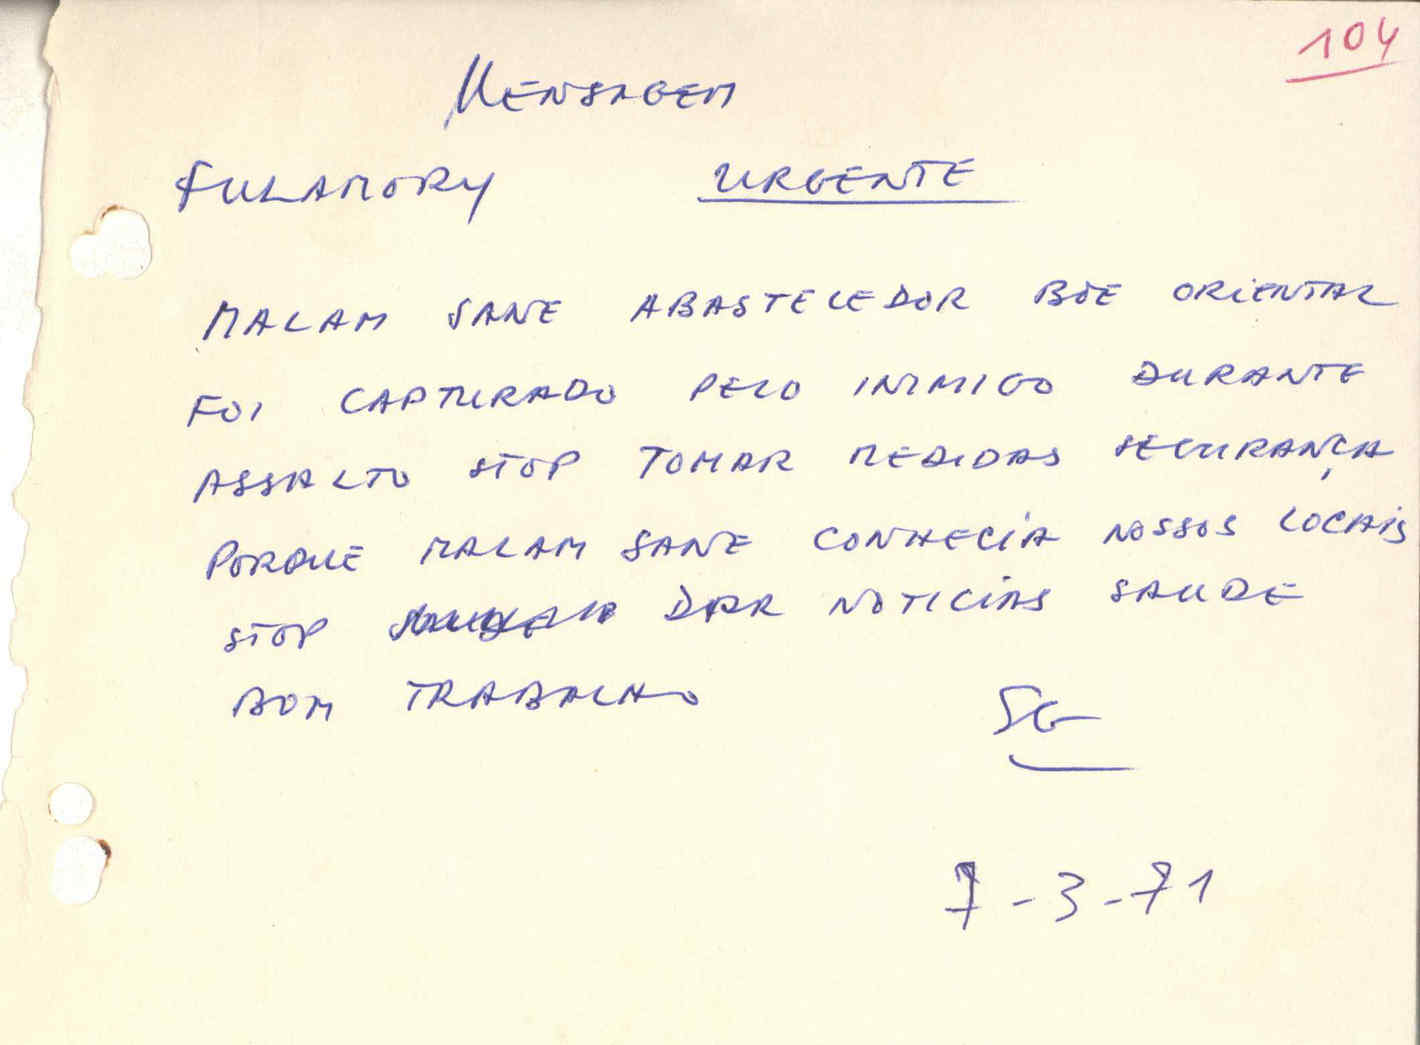 104
MENSAGEM
FULAMORY URGENTE
MALAM SANE ABASTECEDOR BOE ORIENTAL
FOI CAPTURADO PELO INIMIGO DURANTE
ASSALTO STOP TOMAR MEDIDAS SEGURANÇA
PORQUE MALAM SANE CONHECIA NOSSOS LOCAIS
STOP DAR NOTICIAS SAUDE
BOM TRABALHO
SG
7-3-71